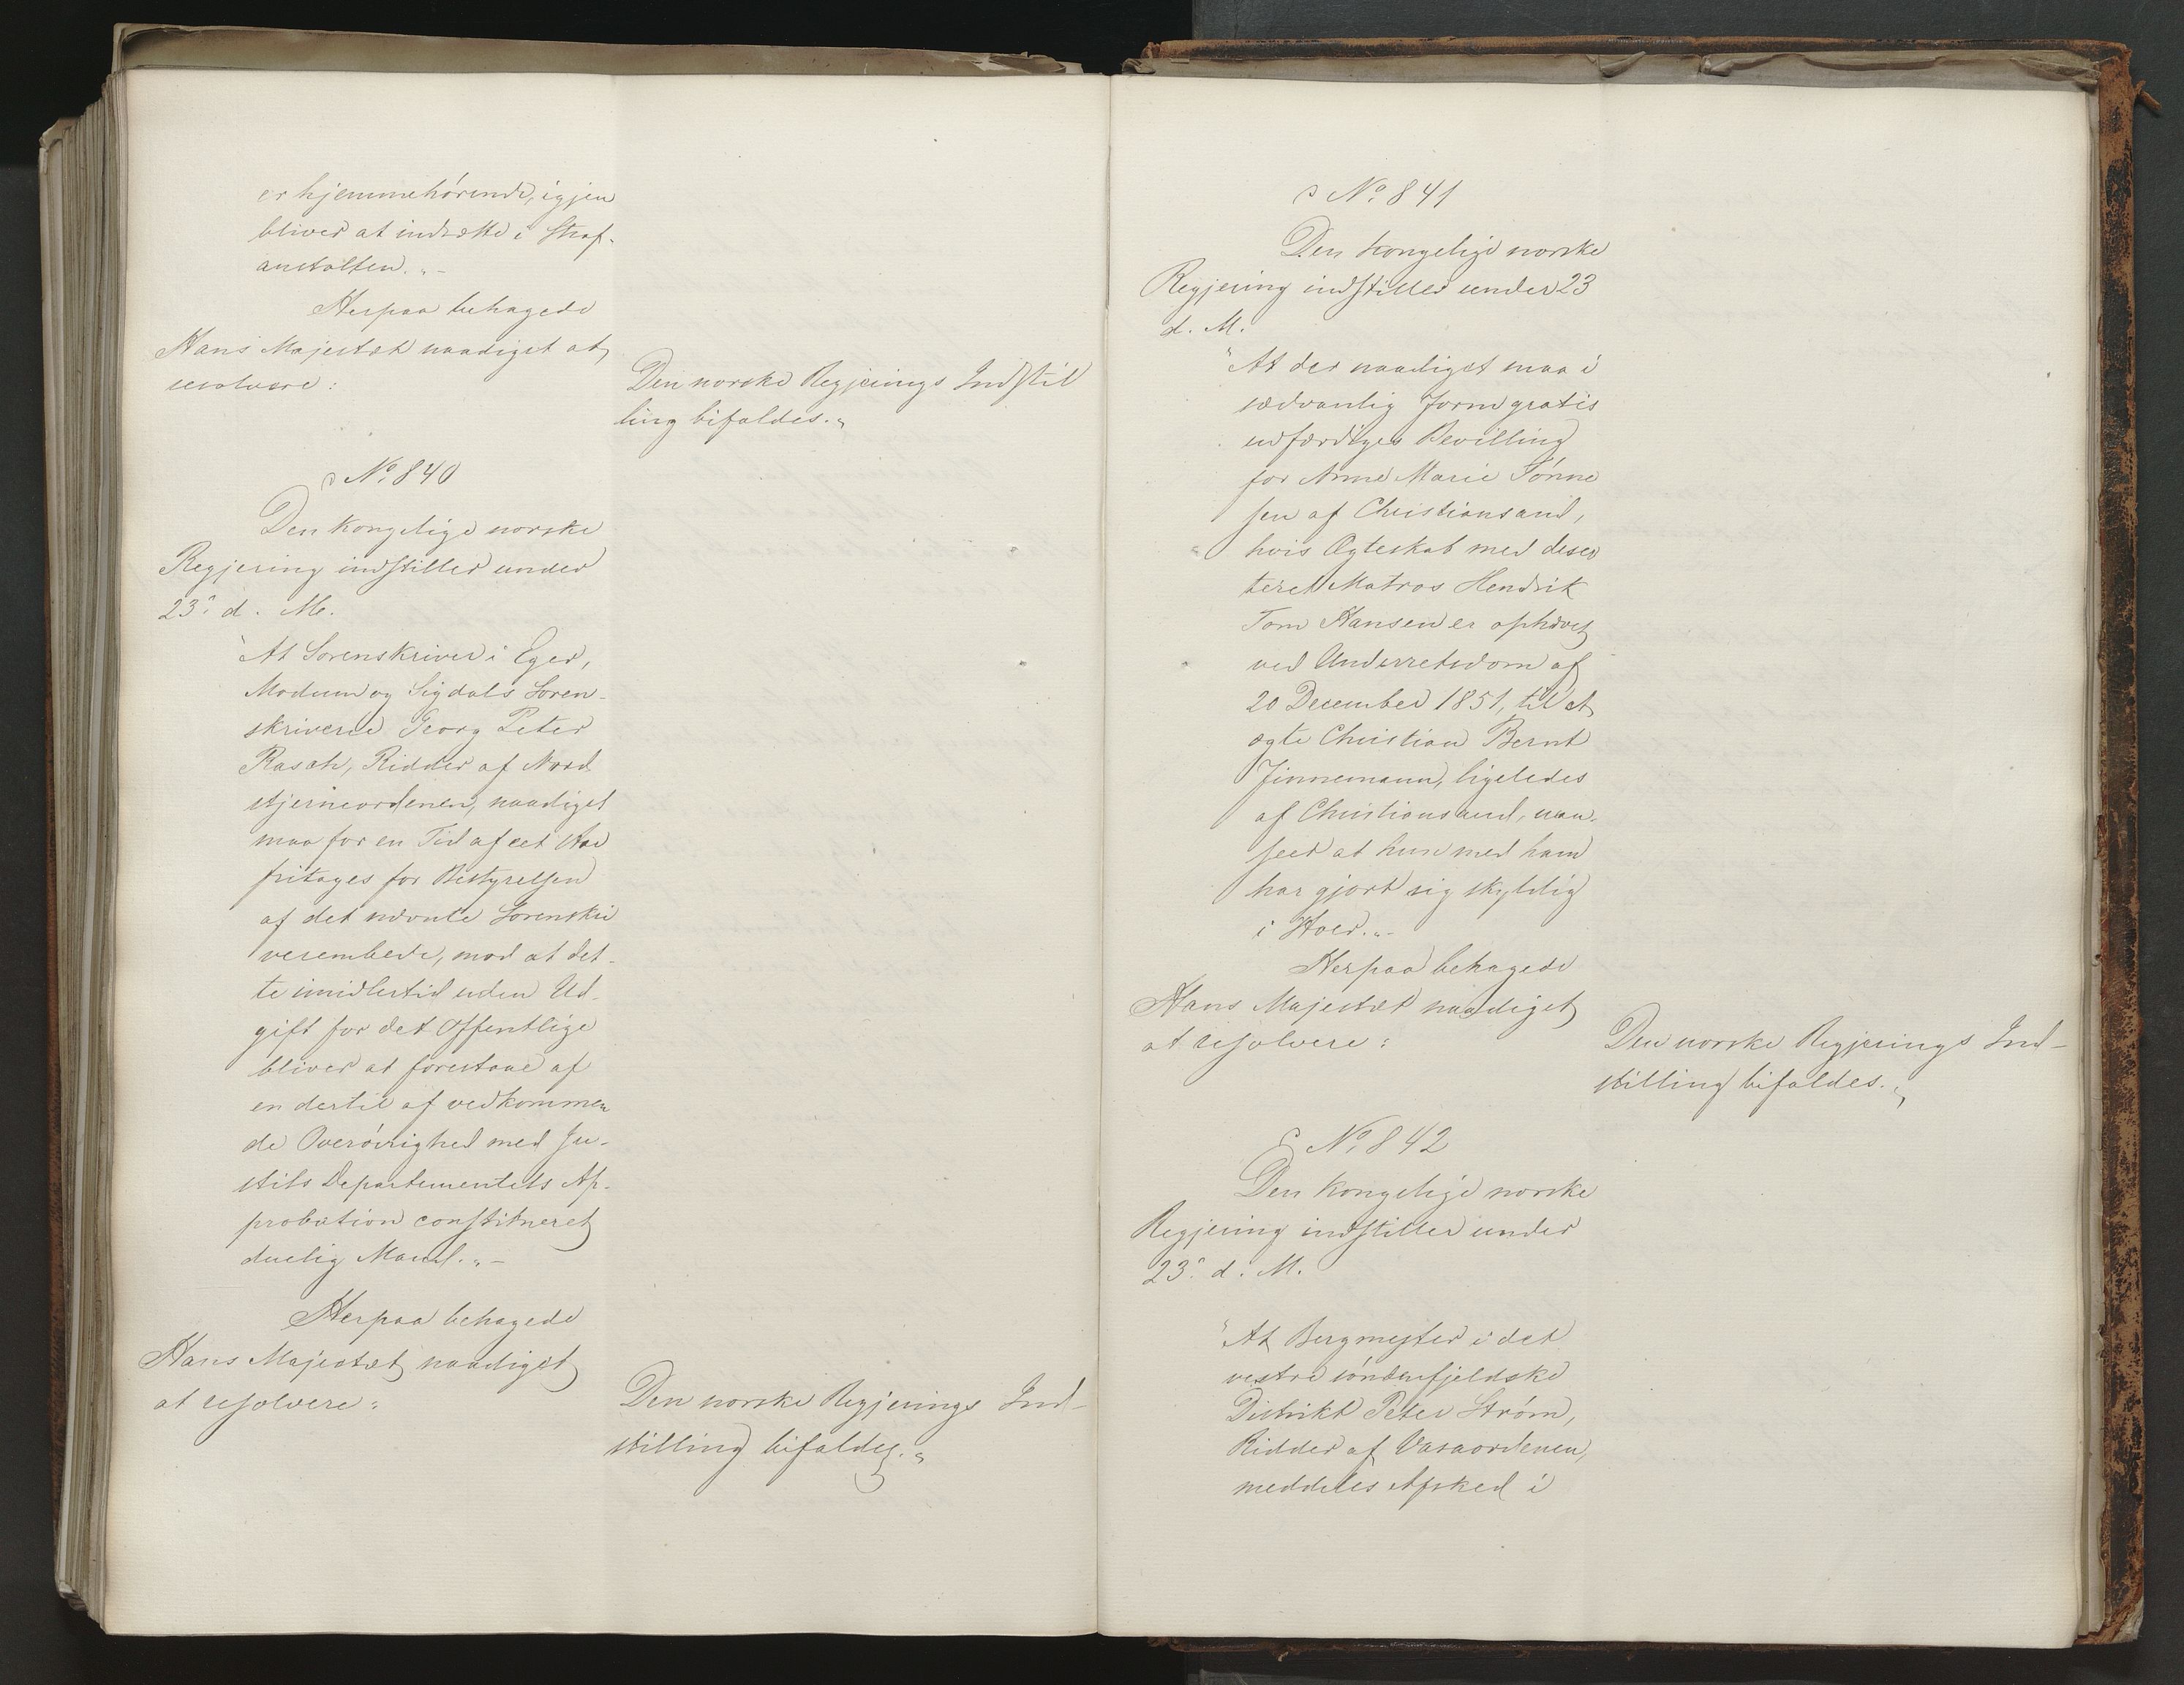 er hjemmehörende, igjen
bliver at indsætte i Straf-
anstalten."-
Herpaa behagede
Hans Majestæt naadigst at
resolvere:
Den norske Regjerings Indstil
ling bifaldes."
No 840
Den kongelige norske
Regjering indstiller under
23: d. M.
"At Sorenskriver i Eger,
Modum og Sigdals Soren-
skriverie Georg Peter
Rasch, Ridder af Nord
stjerneordenen, naadigst
maa for en Tid af eet Aar
fritages for Bestyrelsen
af det nævnte Sorenskri
verembede, mod at det-
te imidlertid uden Ud-
gift for det Offentlige
bliver at forestaae af
en dertil af vedkommen
de Overövrighed med Ju-
stits Departementets Ap-
probation constitueret
duelig Mand."-
Herpaa behagede
Hans Majestæt naadigst
at resolvere:
Den norske Regjerings Ind-
stilling bifaldes."
No 841
Den kongelige norske
Regjering indstiller under 23
d. M.
"At der naadigst maa i
sædvanlig Form gratis
udfærdiges Bevilling
for Anne Marie Tönne
sen af Christiansand,
hvis Ægteskab med deser
teret Matros Hendrik
Tom Hansen er ophævet
ved Underretsdom af
20 December 1851, til at
ægte Christian Bernt
Finnemann, ligeledes
af Christiansand, uan-
seet at hun med ham
har gjort sig skyldig
i Hoer."-
Herpaa behagede
Hans Majestæt naadigst
at resolvere:
Den norske Regjerings Ind-
stilling bifaldes."
No 842
Den kongelige norske
Regjering indstiller under
23: d. M.
"At Bergmester i det
vestre söndenfjeldske
Distrikt Peter Ström,
Ridder af Vasaordenen,
meddeles Afsked i